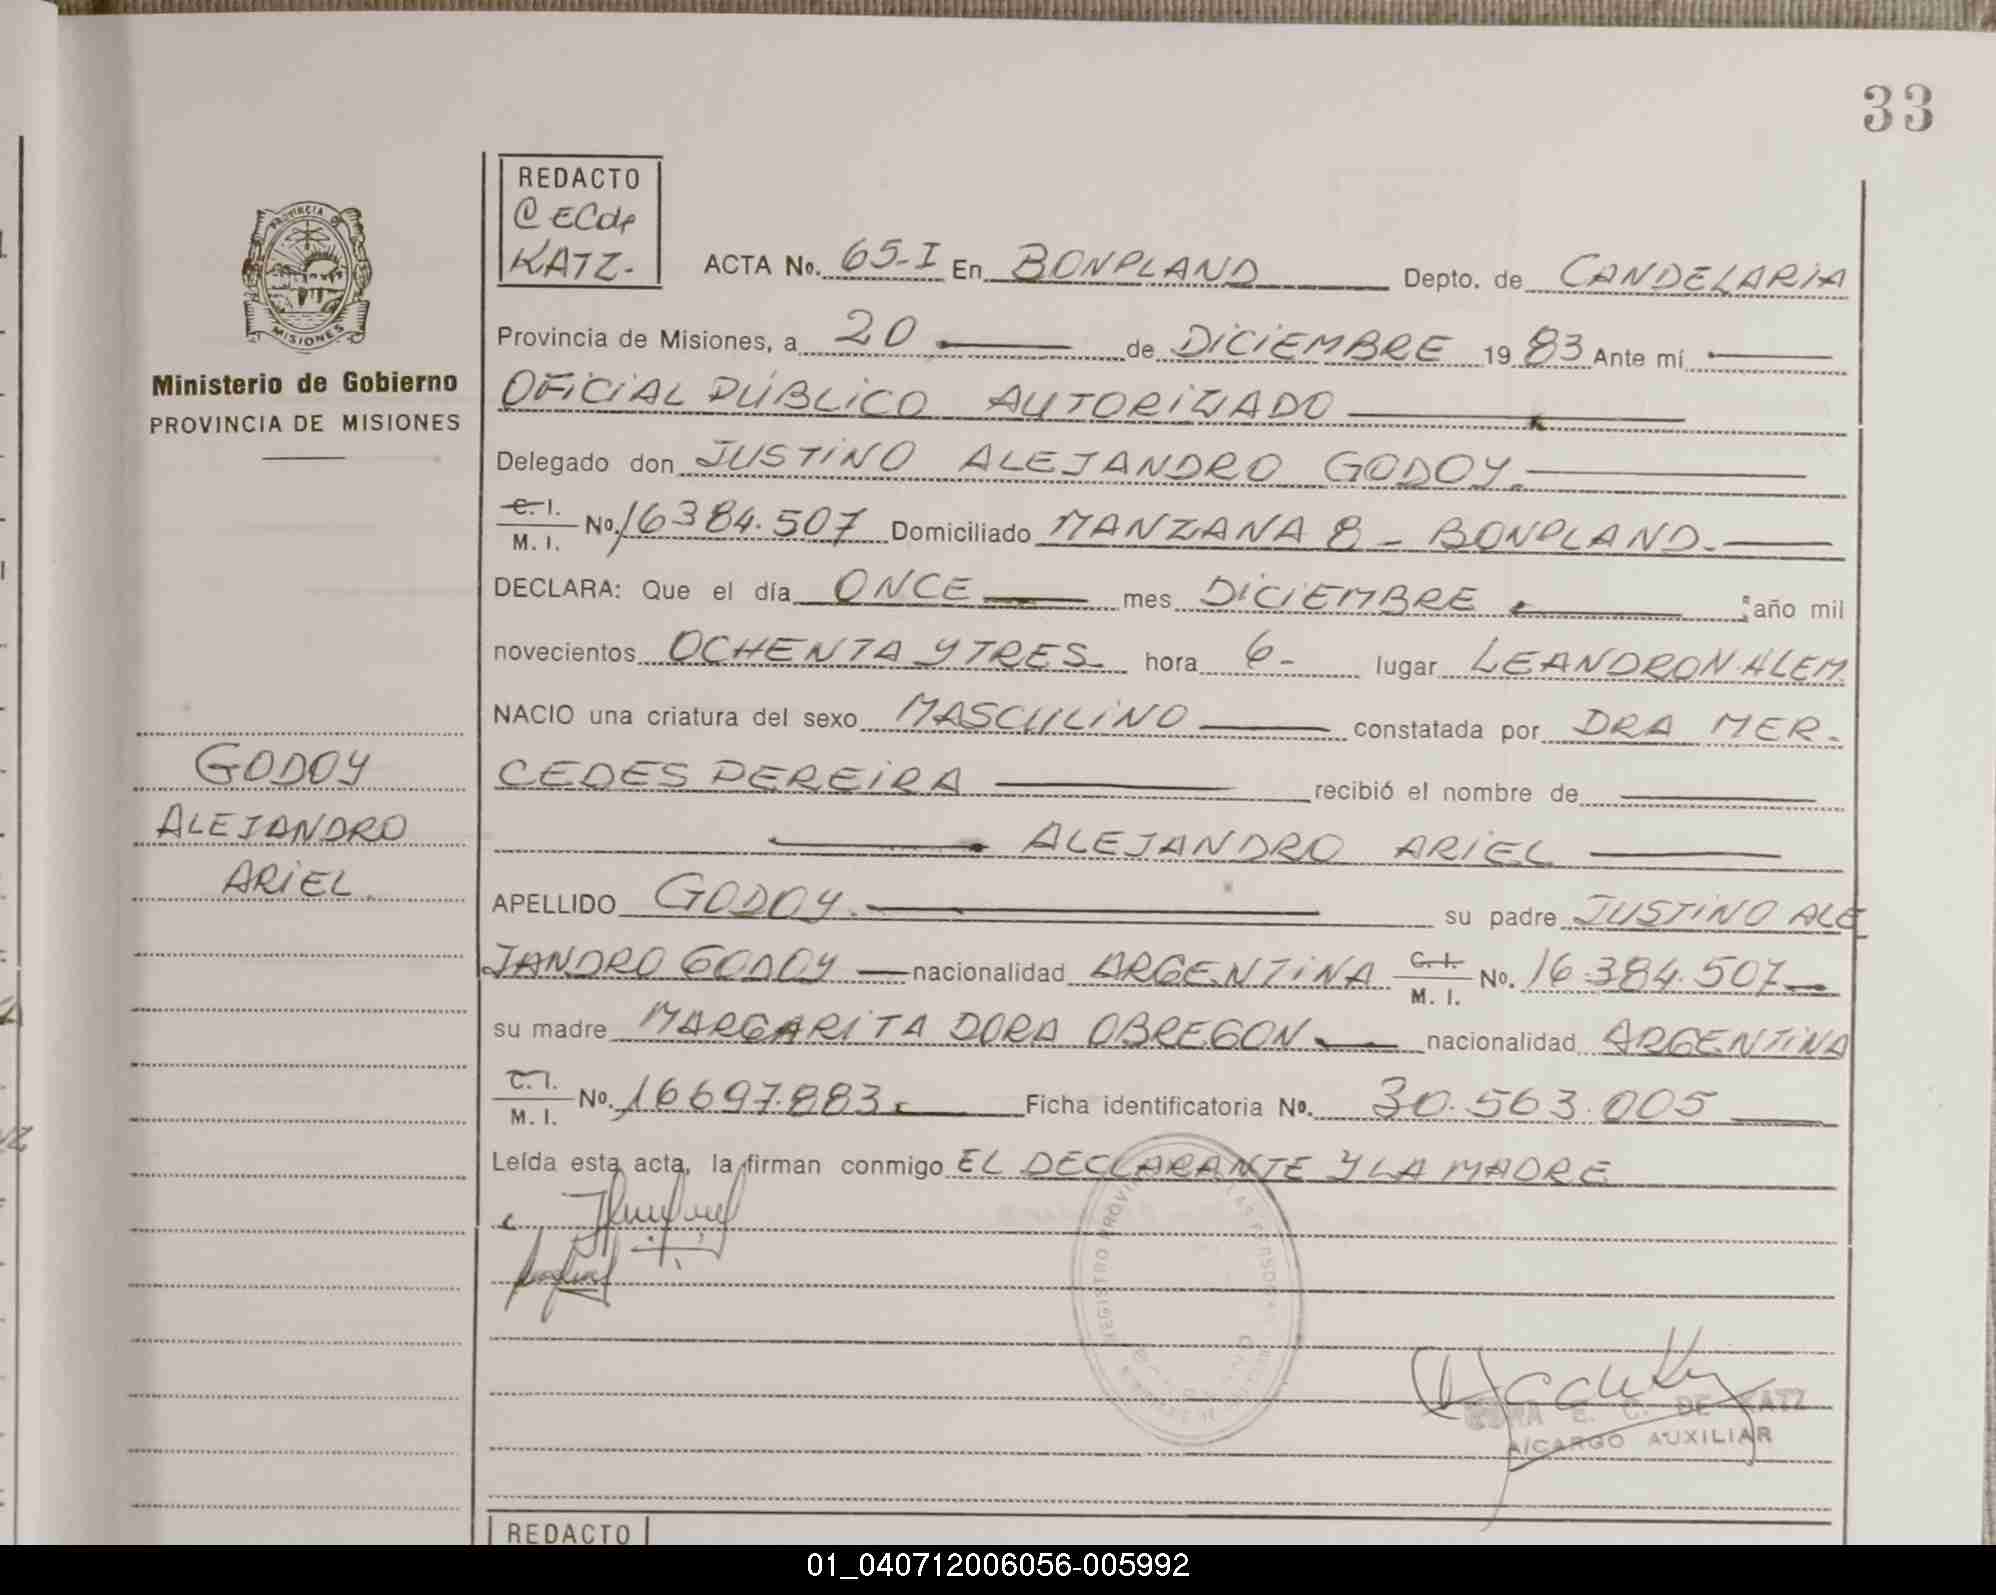 33
REDACTO
C EC de
KATZ.
ACTA No. 65-I En BONPLAND Depto. de CANDELARIA
PROVINCIA DE
MISIONES
Ministerio de Gobierno
PROVINCIA DE MISIONES
Provincia de Misiones, a 20 de DICIEMBRE 1983 Ante mí
OFICIAL PÚBLICO AUTORIZADO
Delegado don JUSTINO ALEJANDRO GODOY.
C. I. / M. I. No. 16384.507 Domiciliado MANZANA 8 - BONPLAND.
DECLARA: Que el día ONCE mes DICIEMBRE año mil
novecientos OCHENTA Y TRES hora 6- lugar LEANDRO N ALEM.
NACIO una criatura del sexo MASCULINO constatada por DRA MER-
CEDES PEREIRA recibió el nombre de
ALEJANDRO ARIEL
GODOY
ALEJANDRO
ARIEL.
APELLIDO GODOY. su padre JUSTINO ALE
JANDRO GODOY nacionalidad ARGENTINA C. I. / M. I. No. 16.384.507
su madre MARGARITA DORA OBREGON nacionalidad ARGENTINA
C. I. / M. I. No. 16697.883. Ficha identificatoria No. 30.563.005
Leída esta acta, la firman conmigo EL DECLARANTE Y LA MADRE
REGISTRO PROVI LAS PERSONAS
E. C. DE KATZ
A/CARGO AUXILIAR
REDACTO
01_040712006056-005992